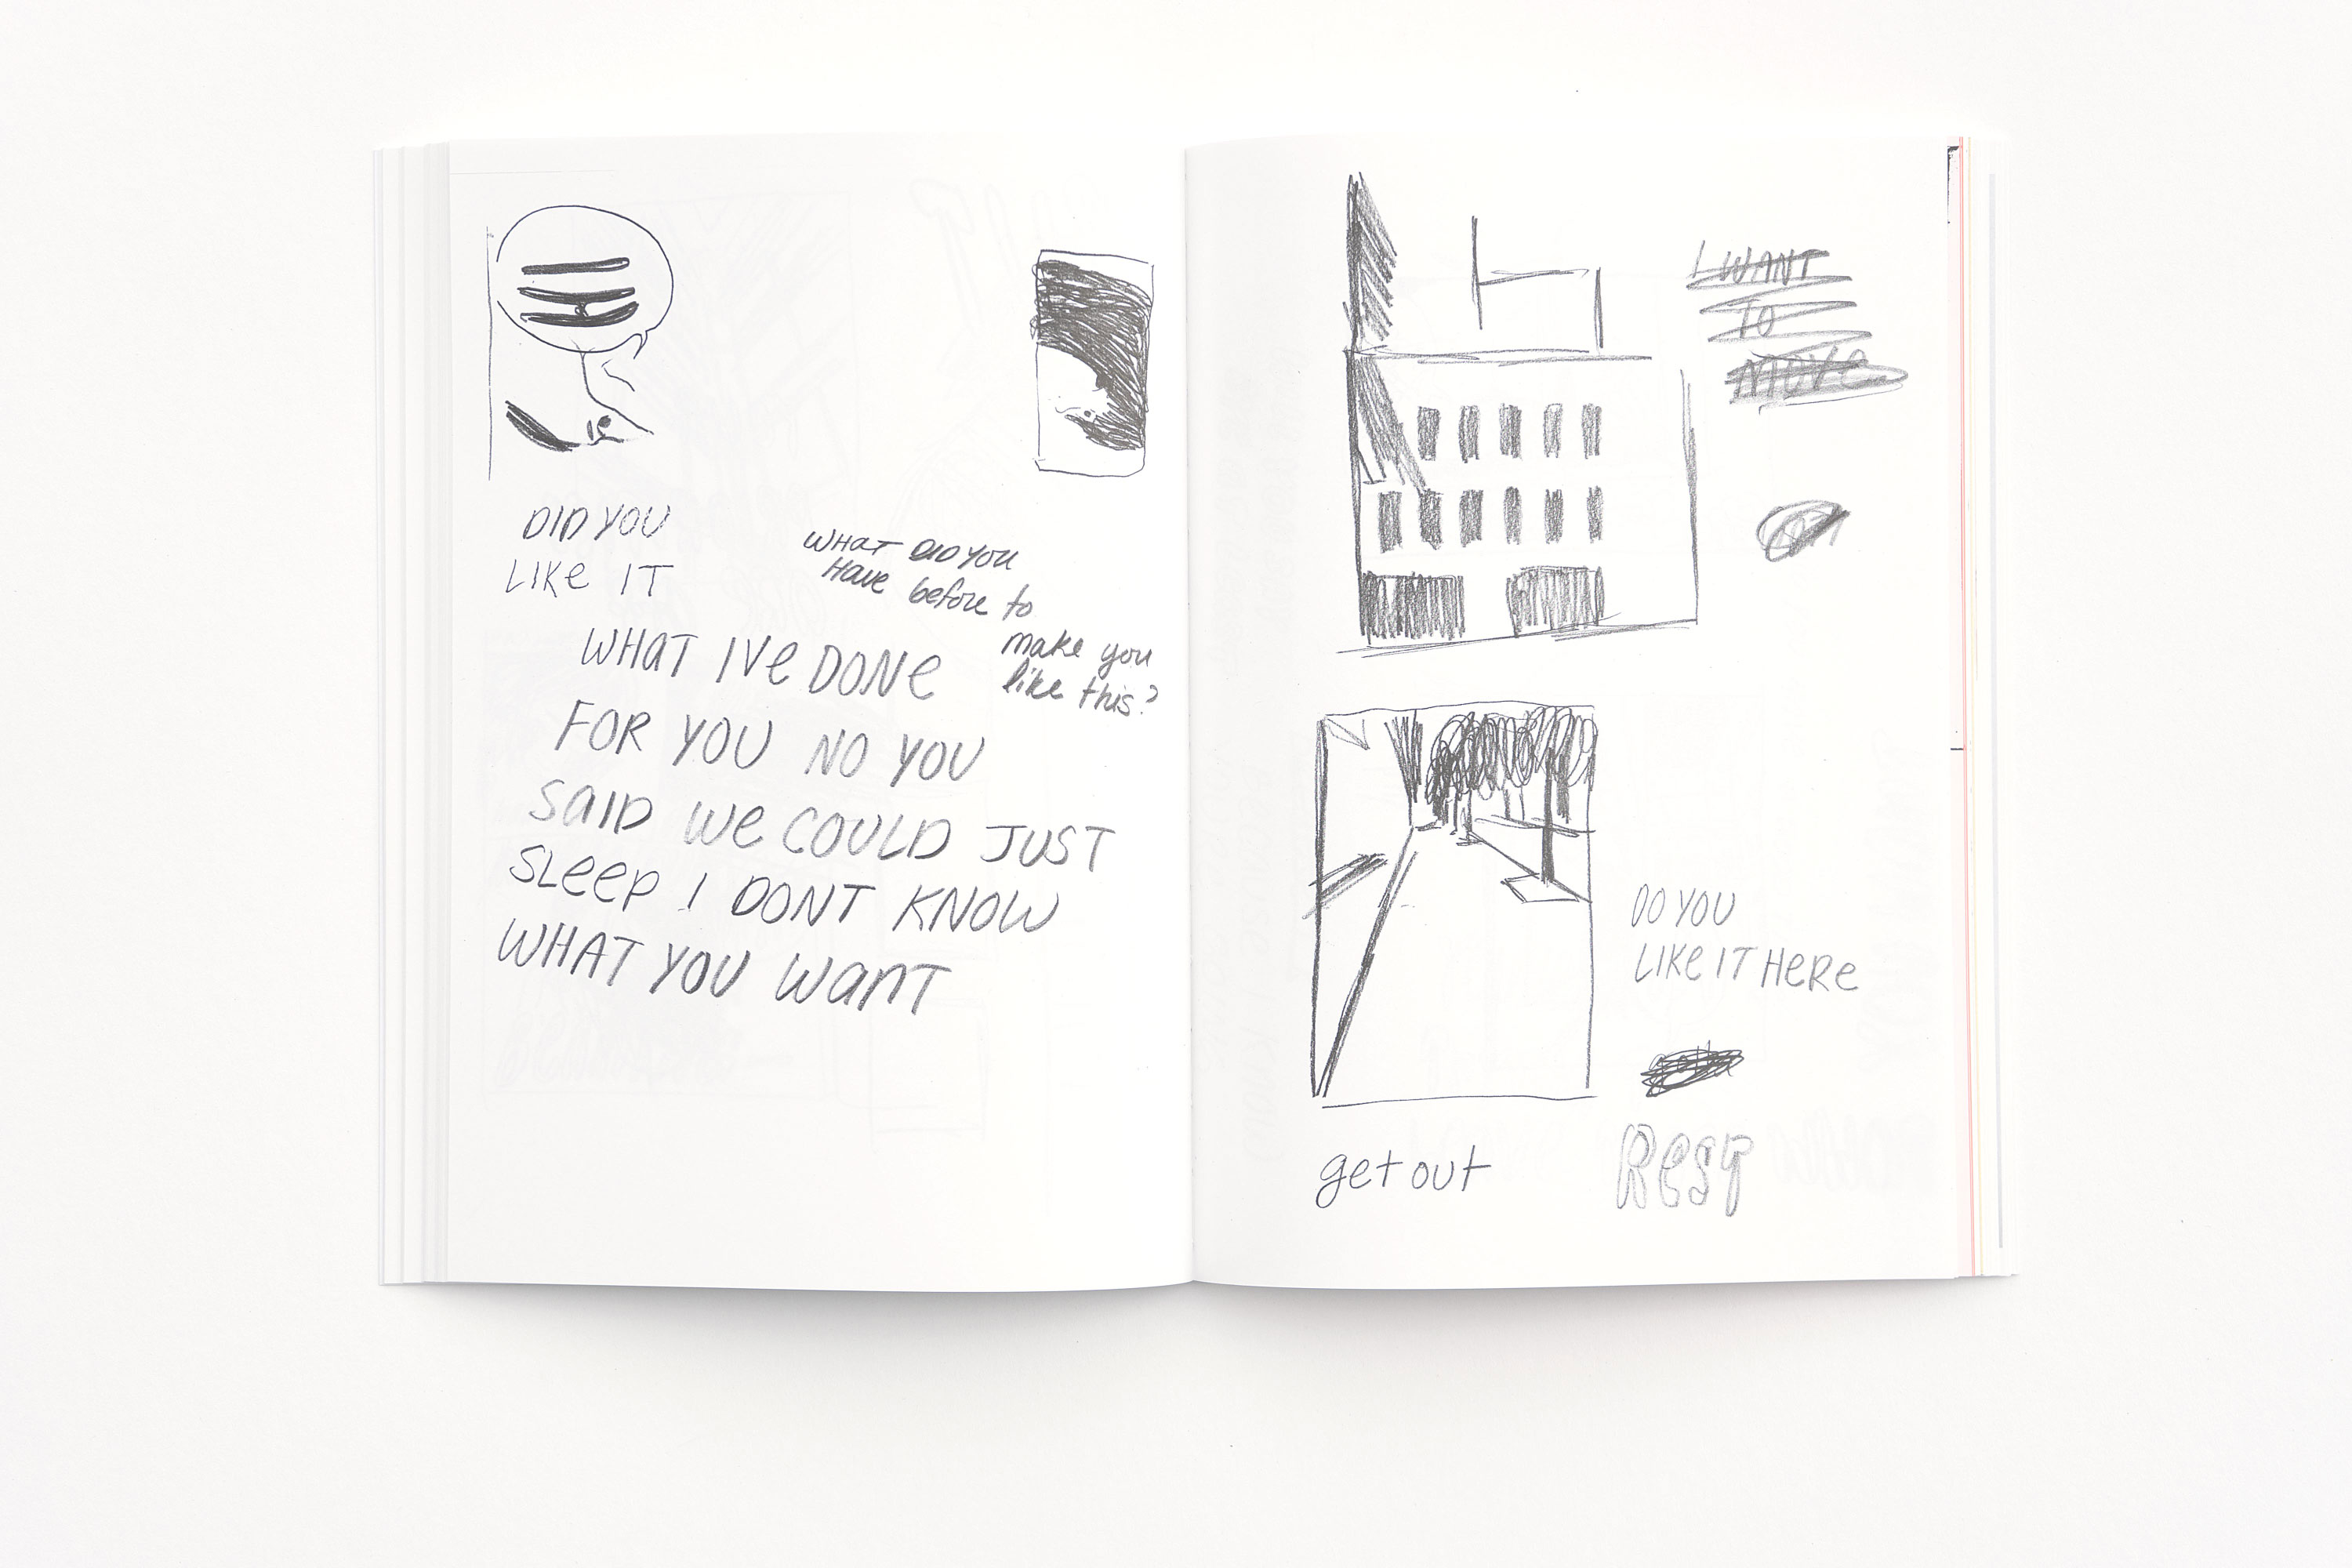 DID YOU
LIKE IT
WHAT DID YOU
Have before to
make you
like this?
WHaT IVe DONe
FOR YOU NO YOU
SaID We COULD JUST
SLeeP I DONT KNOW
WHAT YOU WanT
I WANT
TO
MOVe
DO YOU
LIKe IT HeRe
get out
ResT